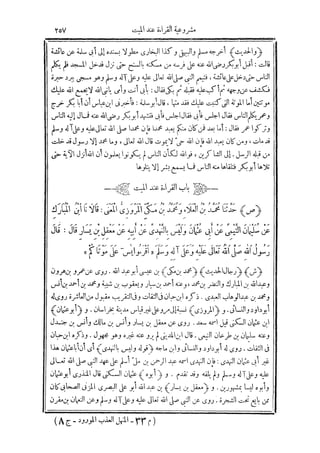 مشروعية القراءة عند الميت ٢٥٧
﴿والحديث﴾ أخرجه مسلم والبيهقى وكذا البخارى مطولا بسنده إلى أبى سلمة عن عائشة
قالت : أقبل أبوبكر رضى الله عنه على فرسه من مسكنه بالسنح حتى نزل فدخل المسجد فلم يكلم
الناس حتى دخل على عائشة ، فتيمم النبى صلى الله تعالى عليه وعلى آله وسلم وهو مسجى ببرد حبرة
فكشف عن وجهه ثم أكب عليه فقبله ثم بكى فقال : بأبى أنت وأمى يانبى الله لايجمع الله عليك
موتتين أما الموتة التى كتبت عليك فقد متها ، قال أبوسلمة : فأخبرنى ابن عباس أن أبا بكر خرج
وعمر يكلم الناس فقال اجلس فأبى فقال اجلس فأبى فتشهد أبوبكر رضى الله عنه فمال إليه الناس
وتركوا عمر فقال : أما بعد فمن كان منكم يعبد محمدا فإن محمدا صلى الله تعالى عليه وعلى آله وسلم
قدمات ، ومن كان يعبد الله فإن الله حى لايموت قال الله تعالى ، وما محمد إلا رسول قد خلت
من قبله الرسل . إلى الشاكرين ، فوالله لكأن الناس لم يكونوا يعلمون أن الله أنزل الآية حتى
تلاها أبوبكر فتلقاها منه الناس فما يسمع بشر إلا يتلوها
باب القراءة عند الميت
﴿ص﴾ حَدَّثَنَا مُحَمَّدُ بْنُ الْعَلَاءِ وَمُحَمَّدُ بْنُ مَكِّىٍّ الْمَرْوَزِىُّ الْمَعْنَى قَالَا ثَنَا ابْنُ الْمُبَارَكِ
عَنْ سُلَيْمَانَ التَّيْمِىِّ عَنْ أَبِى عُثْمَانَ وَلَيْسَ بِالنَّهْدِىِّ عَنْ أَبِيهِ عَنْ مَعْقِلِ بْنِ يَسَارٍ قَالَ : قَالَ
رَسُولُ اللهِ صَلَّى اللهُ تَعَالَى عَلَيْهِ وَعَلَى آلِهِ وَسَلَّمَ اقْرَءُوا يس عَلَى مَوْتَاكُمْ
﴿ش﴾ ﴿رجال الحديث﴾ ﴿محمد بن مكى﴾ بن عيسى أبو عبد الله . روى عن عمرو بن هرون
وعبد الله بن المبارك والنضر بن محمد ، وعنه أحمد بن سيار ويعقوب بن شيبة ومحمد بن أحمد بن أنس
ومحمد بن عبد الوهاب العبدى . ذكره ابن حبان فى الثقات وفى التقريب مقبول من العاشرة روى له
أبوداود والنسائى . و ﴿المروزى﴾ نسبة إلى مرو على غير قياس مدينة بخراسان . و ﴿أبوعثمان﴾
ابن عثمان السكنى قيل اسمه سعد . روى عن معقل بن يسار وأنس بن مالك وأنس بن جندل
وعنه سليمان بن طرخان التيمى . قال ابن المدينى لم يرو عنه غيره وهو مجهول . وذكره ابن حبان
فى الثقات . روى له أبوداود والنسائى وابن ماجه ﴿قوله وليس بالنهدى﴾ أى أن أبا عثمان هذا
غير أبى عثمان النهدى : فإن النهدى اسمه عبد الرحمن بن ملّ أسلم على عهد النبى صلى الله تعالى
عليه وعلى آله وسلم ولم يلقه وقد تقدم . و ﴿أبوه﴾ عثمان السكنى قال المنذرى أبو عثمان
وأبوه ليسا بمشهورين . و ﴿معقل بن يسار﴾ بن عبد الله أبو على البصرى المزنى الصحابى كان
ممن بايع تحت الشجرة . روى عن النبى صلى الله تعالى عليه وعلى آله وسلم وعن النعمان بن مقرن
(م ٣٣ - المنهل العذب المورود - ج ٨)